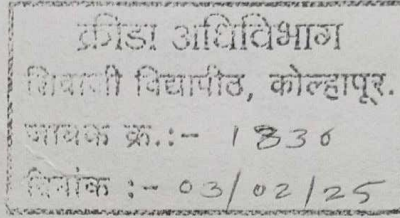 क्रीडा अधिविभाग
शिवाजी विद्यापीठ, कोल्हापूर.
जावक क्र.:- 1836
दिनांक :- 03/02/25